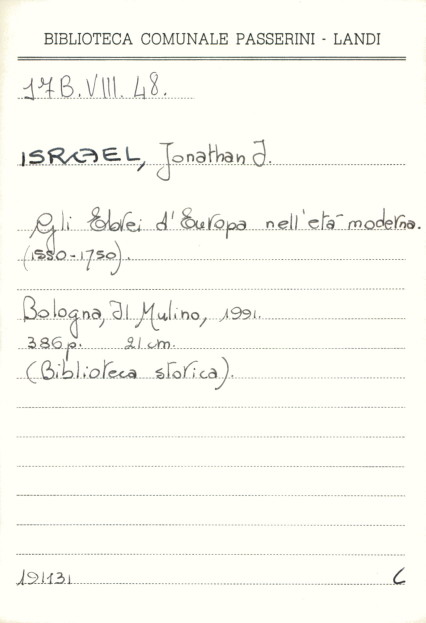 BIBLIOTECA COMUNALE PASSERINI - LANDI
17B.VIII.48.
ISRAEL, Jonathan J.
Gli Ebrei d'Europa nell'età moderna.
(1550-1750).
Bologna, Il Mulino, 1991.
386 p. 21 cm.
(Biblioteca storica).
191131 C